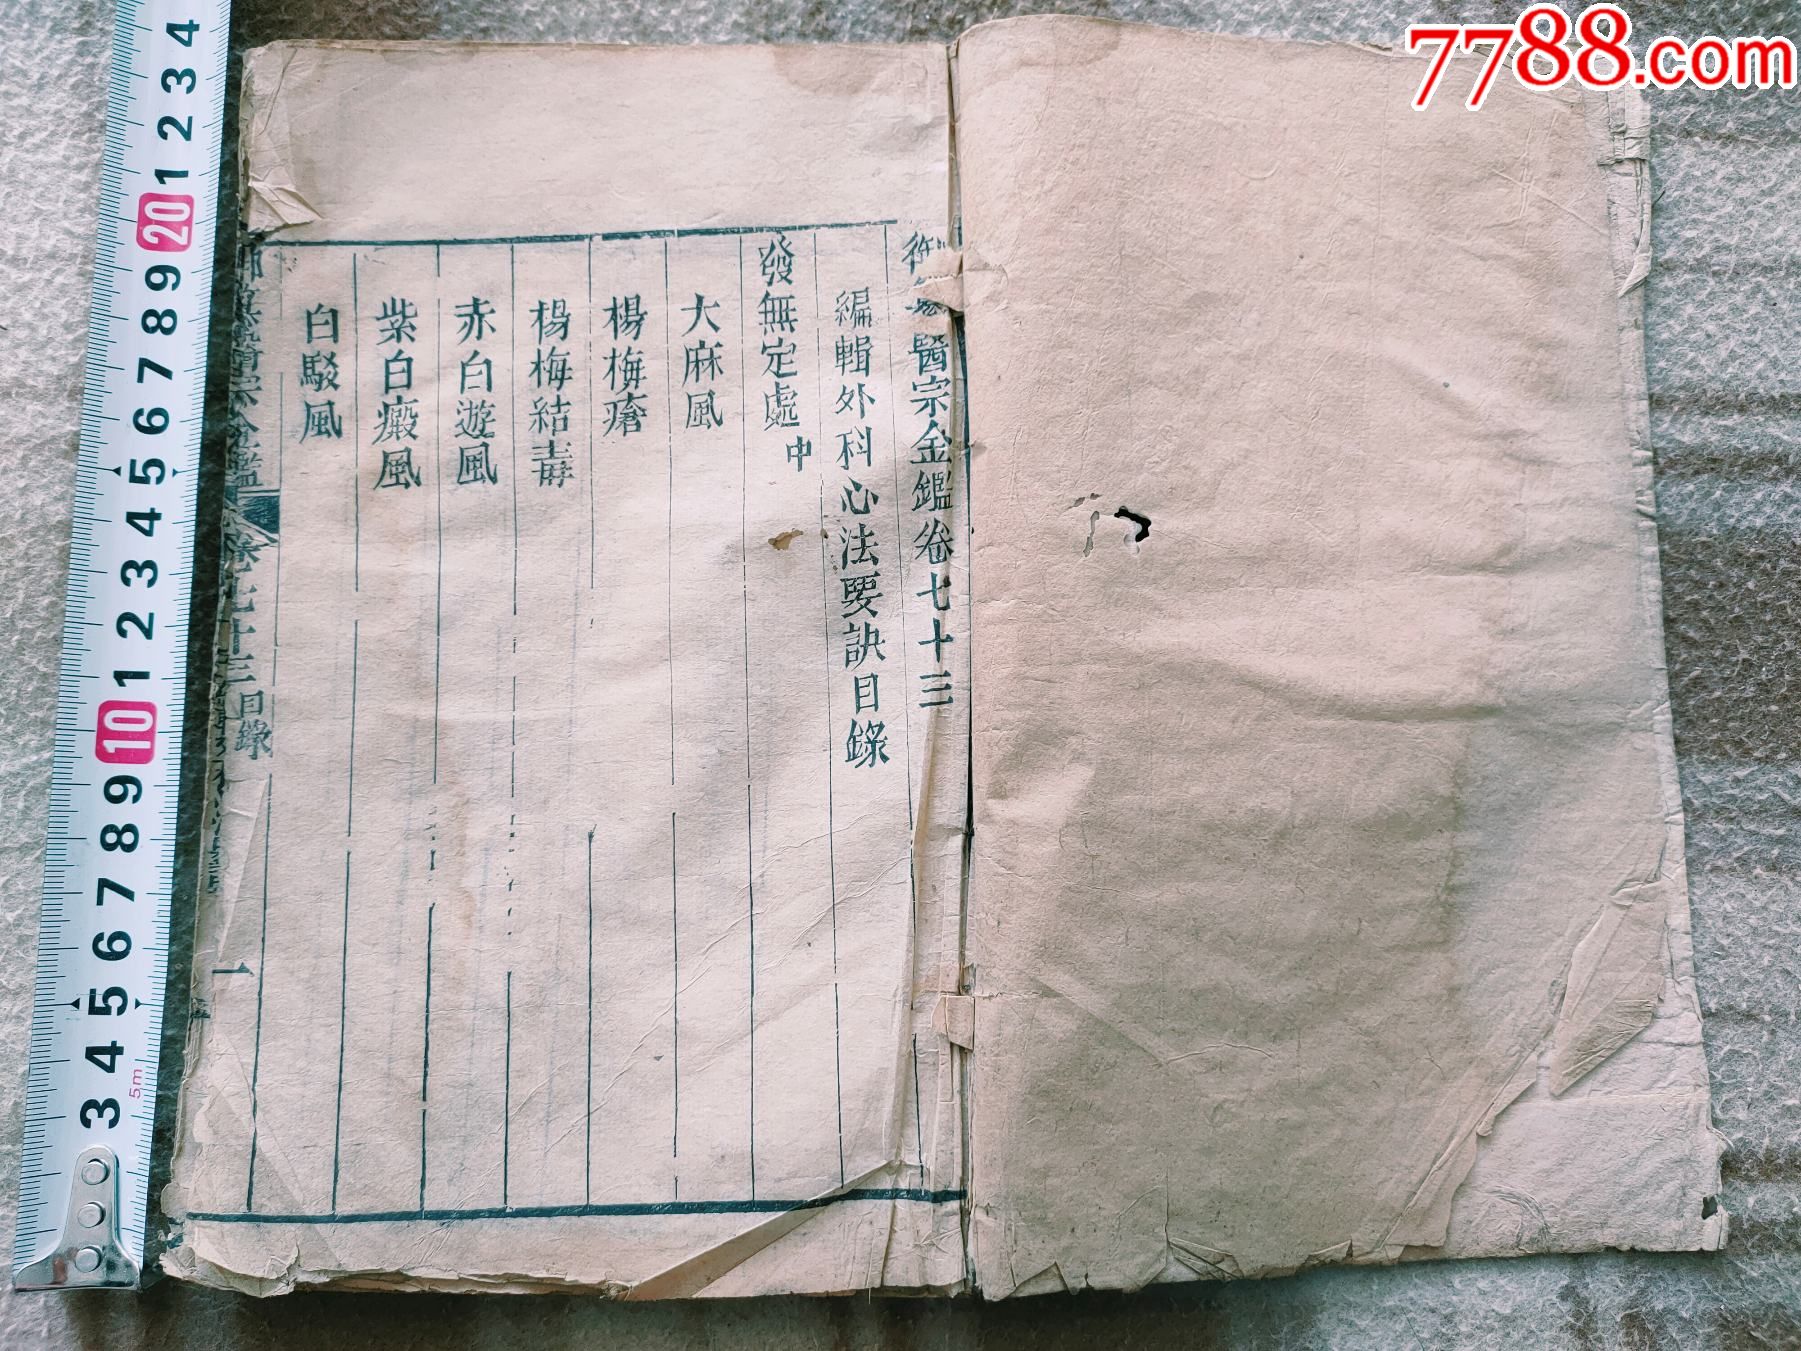 7788.com
御纂醫宗金鑑卷七十三
編輯外科心法要訣目錄
發無定處中
大麻風
楊梅瘡
楊梅結毒
赤白遊風
紫白癜風
白駁風
卷七十三目錄
一
4
3
2
1
20
9
8
7
6
5
4
3
2
1
10
9
8
7
6
5
4
3
5m